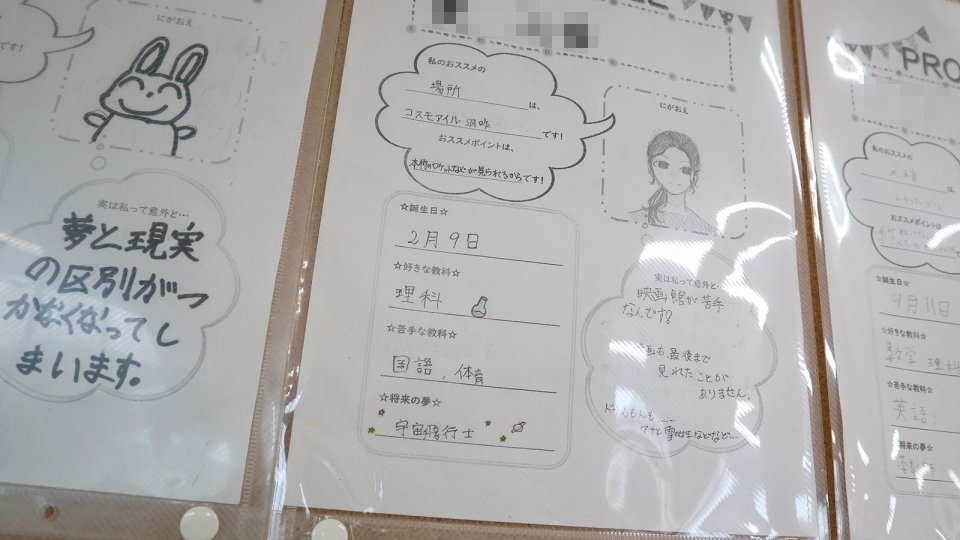 です!
にがおえ
実は私って意外と…
夢と現実
の区別がつ
かなくなってし
まいます。
私のおススメの
場所
は、
コスモアイル 羽咋
です!
おススメポイントは、
本物のロケットなどが見られるからです!
にがおえ
☆誕生日☆
2月9日
☆好きな教科☆
理科
☆苦手な教科☆
国語、体育
☆将来の夢☆
宇宙飛行士
実は私って意外と…
映画館が苦手
なんです?
も、最後まで
見れたことが
ありません。
ドラえもんも……
アナと雪の女王などなど…
PRO
私のおススメの
は
おススメポイントは
☆誕生日☆
9月11日
☆好きな教科☆
理科
☆苦手な教科☆
英語
☆将来の夢☆